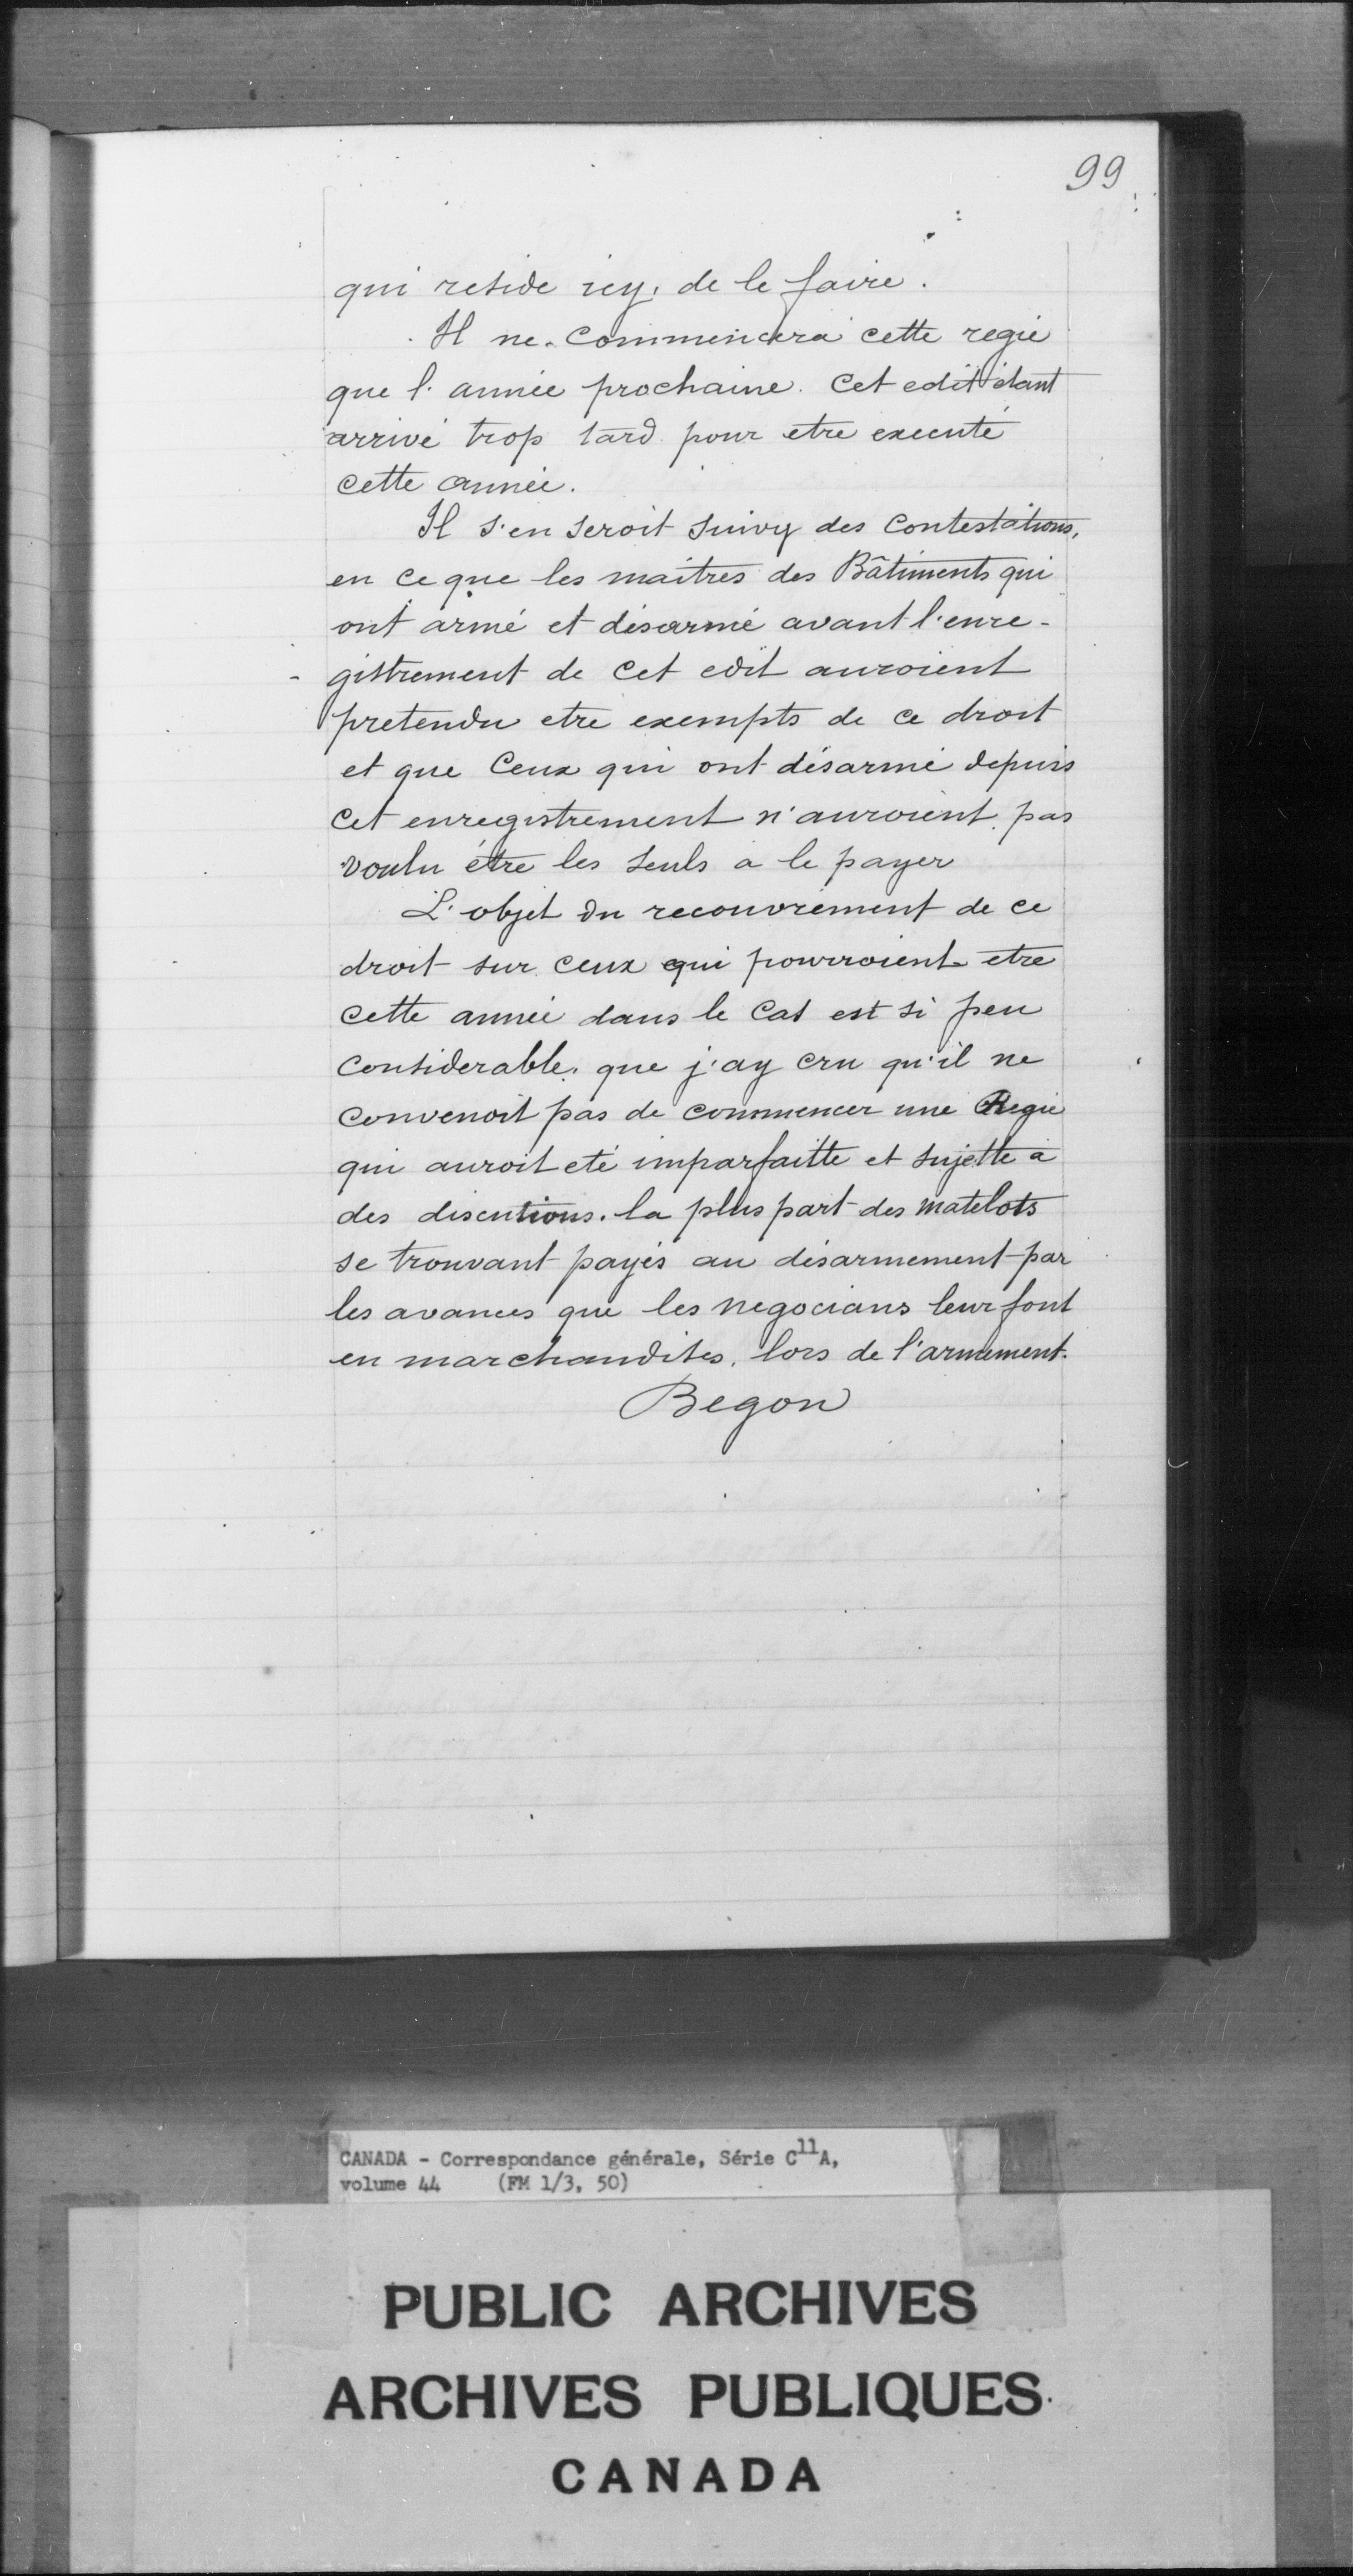 99
qui reside icy, de le faire.
Il ne commencera cette regie
que l'année prochaine. Cet edit étant
arrivé trop tard pour etre executé
cette année.
Il s'en seroit suivy des contestations,
en ce que les maîtres des Bâtiments qui
ont armé et désarmé avant l'enre-
- gistrement de cet edit auroient
pretendu etre exempts de ce droit
et que Ceux qui ont désarmé depuis
cet enregistrement n'auroient pas
voulu être les seuls a le payer
L'objet du recouvrement de ce
droit sur ceux qui pourroient etre
cette année dans le cas est si peu
considerable, que j'ay cru qu'il ne
convenoit pas de commencer une Regie
qui auroit eté imparfaitte et sujette a
des discutions. la plus part des matelots
se trouvant payés au désarmement par
les avances que les negocians leur font
en marchandises, lors de l'armement.
Begon
CANADA - Correspondance générale, Série C11A,
volume 44 (FM 1/3, 50)
PUBLIC ARCHIVES
ARCHIVES PUBLIQUES
CANADA